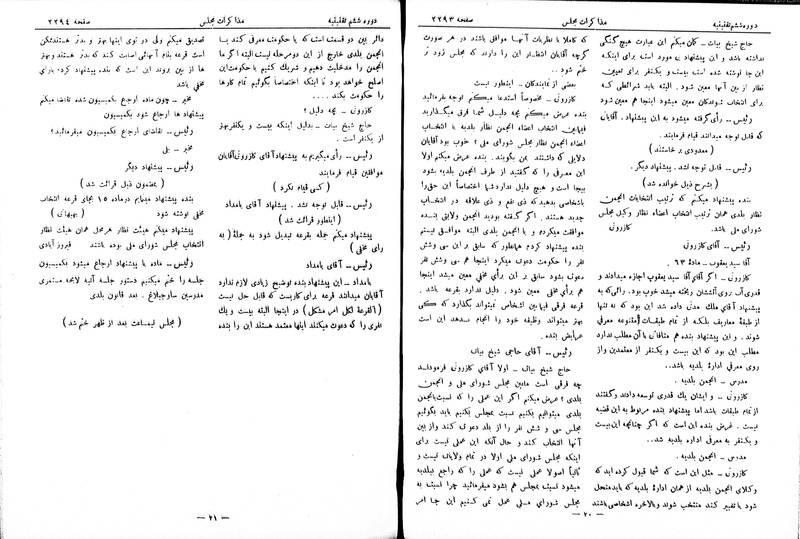 دوره ششم تقنینیه
مذاکرات مجلس
صفحه ۲۲۹۳
حاج شیخ بیات - گمان میکنم این عبارت هیچ گنگی
نداشته باشد و این پیشنهاد بی مورد است برای اینکه
این جا نوشته شده است بیست و یکنفر برای تعیین
نظار از بین آنها معین شود. البته باید شرائطی که
برای انتخاب شوندگان معین میشود اینجا هم معین شود
رئیس - رأی گرفته میشود به این پیشنهاد. آقایان
که قابل توجه میدانند قیام فرمایند.
(معدودی برخاستند)
رئیس - قابل توجه نشد. پیشنهاد دیگر.
(بشرح ذیل خوانده شد)
بنده پیشنهاد میکنم که ترتیب انتخابات انجمن
نظار بلدی همان ترتیب انتخاب اعضاء نظار وکیل مجلس
شورای ملی باشد. کازرونی
رئیس - آقای کازرونی
آقا سید یعقوب - ماده ۶۳
کازرونی - اگر آقای آقا سید یعقوب اجازه میدادند و
قدری آب روی آتششان ریخته میشد خوب بود. رائی که به
پیشنهاد آقای ملک مدنی داده شد این بود که نه تنها
از طبقهٔ معاریف بلکه از تمام طبقات متنوعه معرفی
شوند. و این پیشنهاد بنده هم منافاتی با آن مطلب ندارد
مطلب این بود که این بیست و یکنفر از معتمدین و از
روی معرفی ادارهٔ بلدیه باشد..
مدرس - انجمن بلدیه.
کازرونی - و ایشان یک قدری توسعه دادند و گفتند
از تمام طبقات باشد اما پیشنهاد بنده مربوط به این قضیه
نیست. غرض بنده این است که اگر چنانچه این بیست
و یکنفر به معرفی اداره بلدیه شد..
مدرس - انجمن بلدیه.
کازرونی - مثل این است که شما قبول کرده اید که
وکلای انجمن بلدیه از همان ادارهٔ بلدیه که باید منحل
شود یا تغییر کند منتخب شوند و بالاخره اشخاصی باشند
که کاملا با نظریات آنها موافق باشند در هر صورت
گرچه آقایان انتظار این را دارند که مجلس زود تر
ختم شود..
بعضی از نمایندگان - اینطور نیست
کازرونی - مخصوصاً استدعا میکنم توجه بفرمائید
بنده عرض میکنم بچه دلیل شما فرق میگذارید
فیمابین انتخاب اعضاء انجمن نظار بلدیه با انتخاب
اعضاء انجمن نظار مجلس شورای ملی؟ خوب بود آقایان
دلایلی که داشتند بمن بگویند. بنده عرض میکنم اولا
این معرفی را که گفتید از طرف انجمن بلدیه بشود
بیجا است و هیچ دلیل ندارد شما اختصاصاً این حق را
باشخاصی بدهید که ذی نفع و ذی علاقه در انتخاب
جدید هستند. اگر گفته بودید انجمن ولایتی بنده
موافقت میکردم و با انجمن بلدی البته موافق نیستم
بنده پیشنهاد کردم همانطور که سابق بر این سی و شش
نفر را حکومت دعوت میکرد اینجا هم سی وشش نفر
دعوت بشود سابق بر این برأی مخفی معین میشد اینجا
هم برأی مخفی معین شود. و دلیل ندارد بقرعه باشد.
قرعه فرق فیمابین اشخاص نمیتواند بگذارد که کی
بهتر میتواند وظیفه خود را انجام بدهد این است
عرایض بنده.
رئیس - آقای حاجی شیخ بیات
حاج شیخ بیات - اولا آقای کازرونی فرمودند
چه فرقی است مابین مجلس شورای ملی و انجمن
بلدی؟ عرض میکنم اگر این عملی را که نسبت بانجمن
بلدی میتوانیم بکنیم نسبت بمجلس بکنیم باید بگوئیم
مجلس سی و شش نفر را از بلد دعوت کند و از بین
آنها انتخاب کند و حال آنکه این عملی نیست برای
اینکه مجلس شورای ملی اولا در تمام ولایات نیست و
ثانیاً اصولا عملی نیست که عملی را که راجع ببلدیه
میشود نسبت بمجلس هم بشود میفرمائید چرا نسبت به
مجلس شورای ملی عمل نمی کنیم این جا امر
— ۲۰ —
دوره ششم تقنینیه
مذاکرات مجلس
صفحه ۲۲۹۴
دائر بین دو قسمت است که یا حکومت معرفی کند یا
انجمن بلدی خارج از این دو مرحله نیست البته اگر ما
انجمن را مدخلیت دهیم و شریک کنیم با حکومت این
اصلح خواهد بود تا اینکه اختصاصاً بگوئیم تمام کارها
را حکومت بکند....
کازرونی - بچه دلیل؟
حاج شیخ بیات - بدلیل اینکه بیست و یکنفر بهتر
از یکنفر است.
رئیس - رأی میگیریم به پیشنهاد آقای کازرونی آقایان
موافقین قیام فرمایند
(کسی قیام نکرد)
رئیس - قابل توجه نشد. پیشنهاد آقای بامداد
(اینطور قرائت شد)
پیشنهاد میکنم جمله بقرعه تبدیل شود به جمله (به
رأی مخفی)
رئیس - آقای بامداد
بامداد - این پیشنهاد بنده توضیح زیادی لازم ندارد
آقایان میدانند قرعه برای کاریست که قابل حل نیست
(القرعة لکل امر مشکل) در اینجا البته بیست و یک
نفری را که دعوت میکنند اینها معتمد هستند این را بنده
تصدیق میکنم ولی در توی اینها بهتر و بدتر هستند ممکن
است قرعه بنام آنهائی اصابت کند که بدتر هستند و بهتر
ها از بین بروند این است که بنده پیشنهاد کردم که برای
مخفی باشد
مخبر - چون ماده ارجاع بکمیسیون شده تقاضا میکنم
پیشنهاد ها ارجاع شود بکمیسیون
رئیس - تقاضای ارجاع بکمیسیون میفرمائید؟
مخبر - بلی
رئیس - پیشنهاد دیگر
(بمضمون ذیل قرائت شد)
بنده پیشنهاد مینمایم در ماده ۱۵ بجای قرعه انتخاب
مخفی نوشته شود (بهبهانی)
پیشنهاد میکنم هیئت نظار هر محل همان هیئت نظار
انتخاب مجلس شورای ملی بوده باشند فیروزآبادی
رئیس - ماده با پیشنهاد ارجاع میشود بکمیسیون
جلسه را ختم میکنیم دستور جلسه آتیه لایحه مستمری
مدرسین ساوجبلاغ. بعد قانون بلدی
(مجلس نیمساعت بعد از ظهر ختم شد)
— ۲۱ —